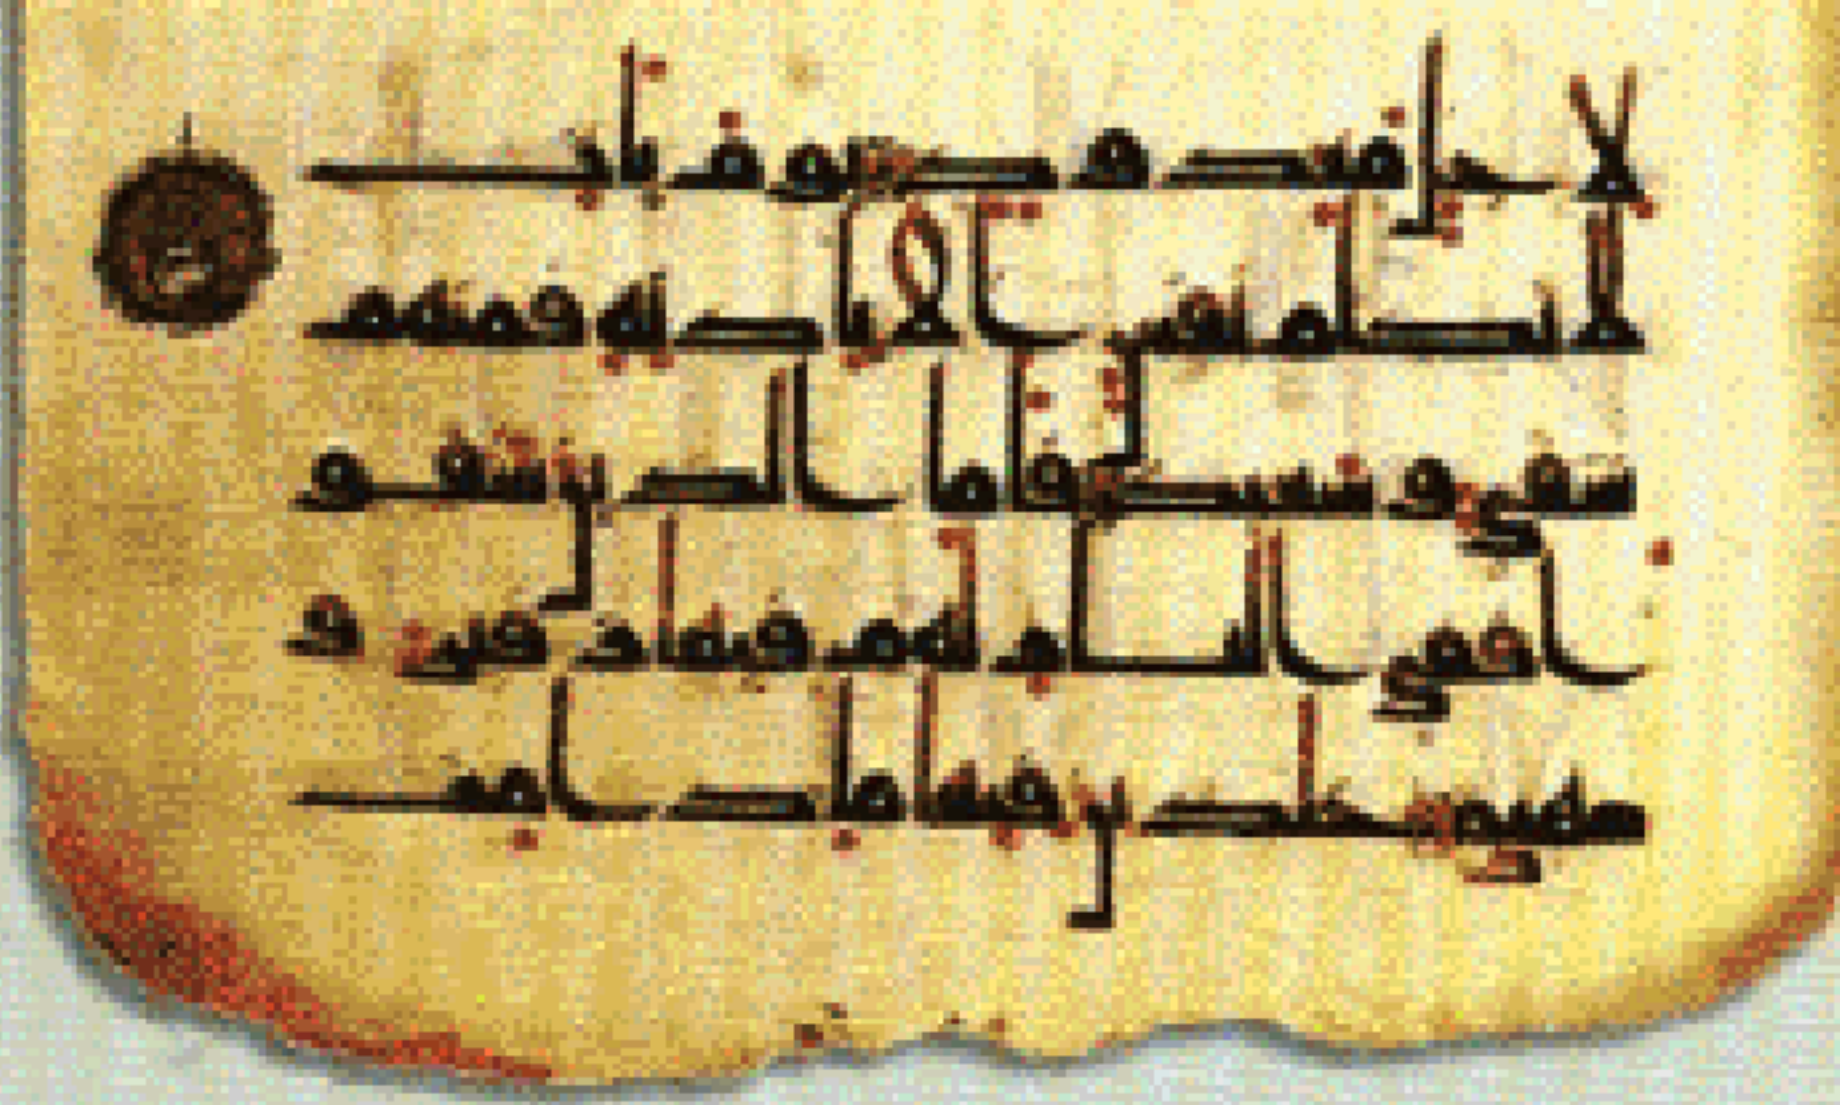 لا جل معدود يوم يات
لا تكلم نفس الا باذنه فمنهم
شقي وسعيد فاما الذين شقو
ا ففي النار لهم فيها زفير و
شهيق خلدين فيها ما دامت